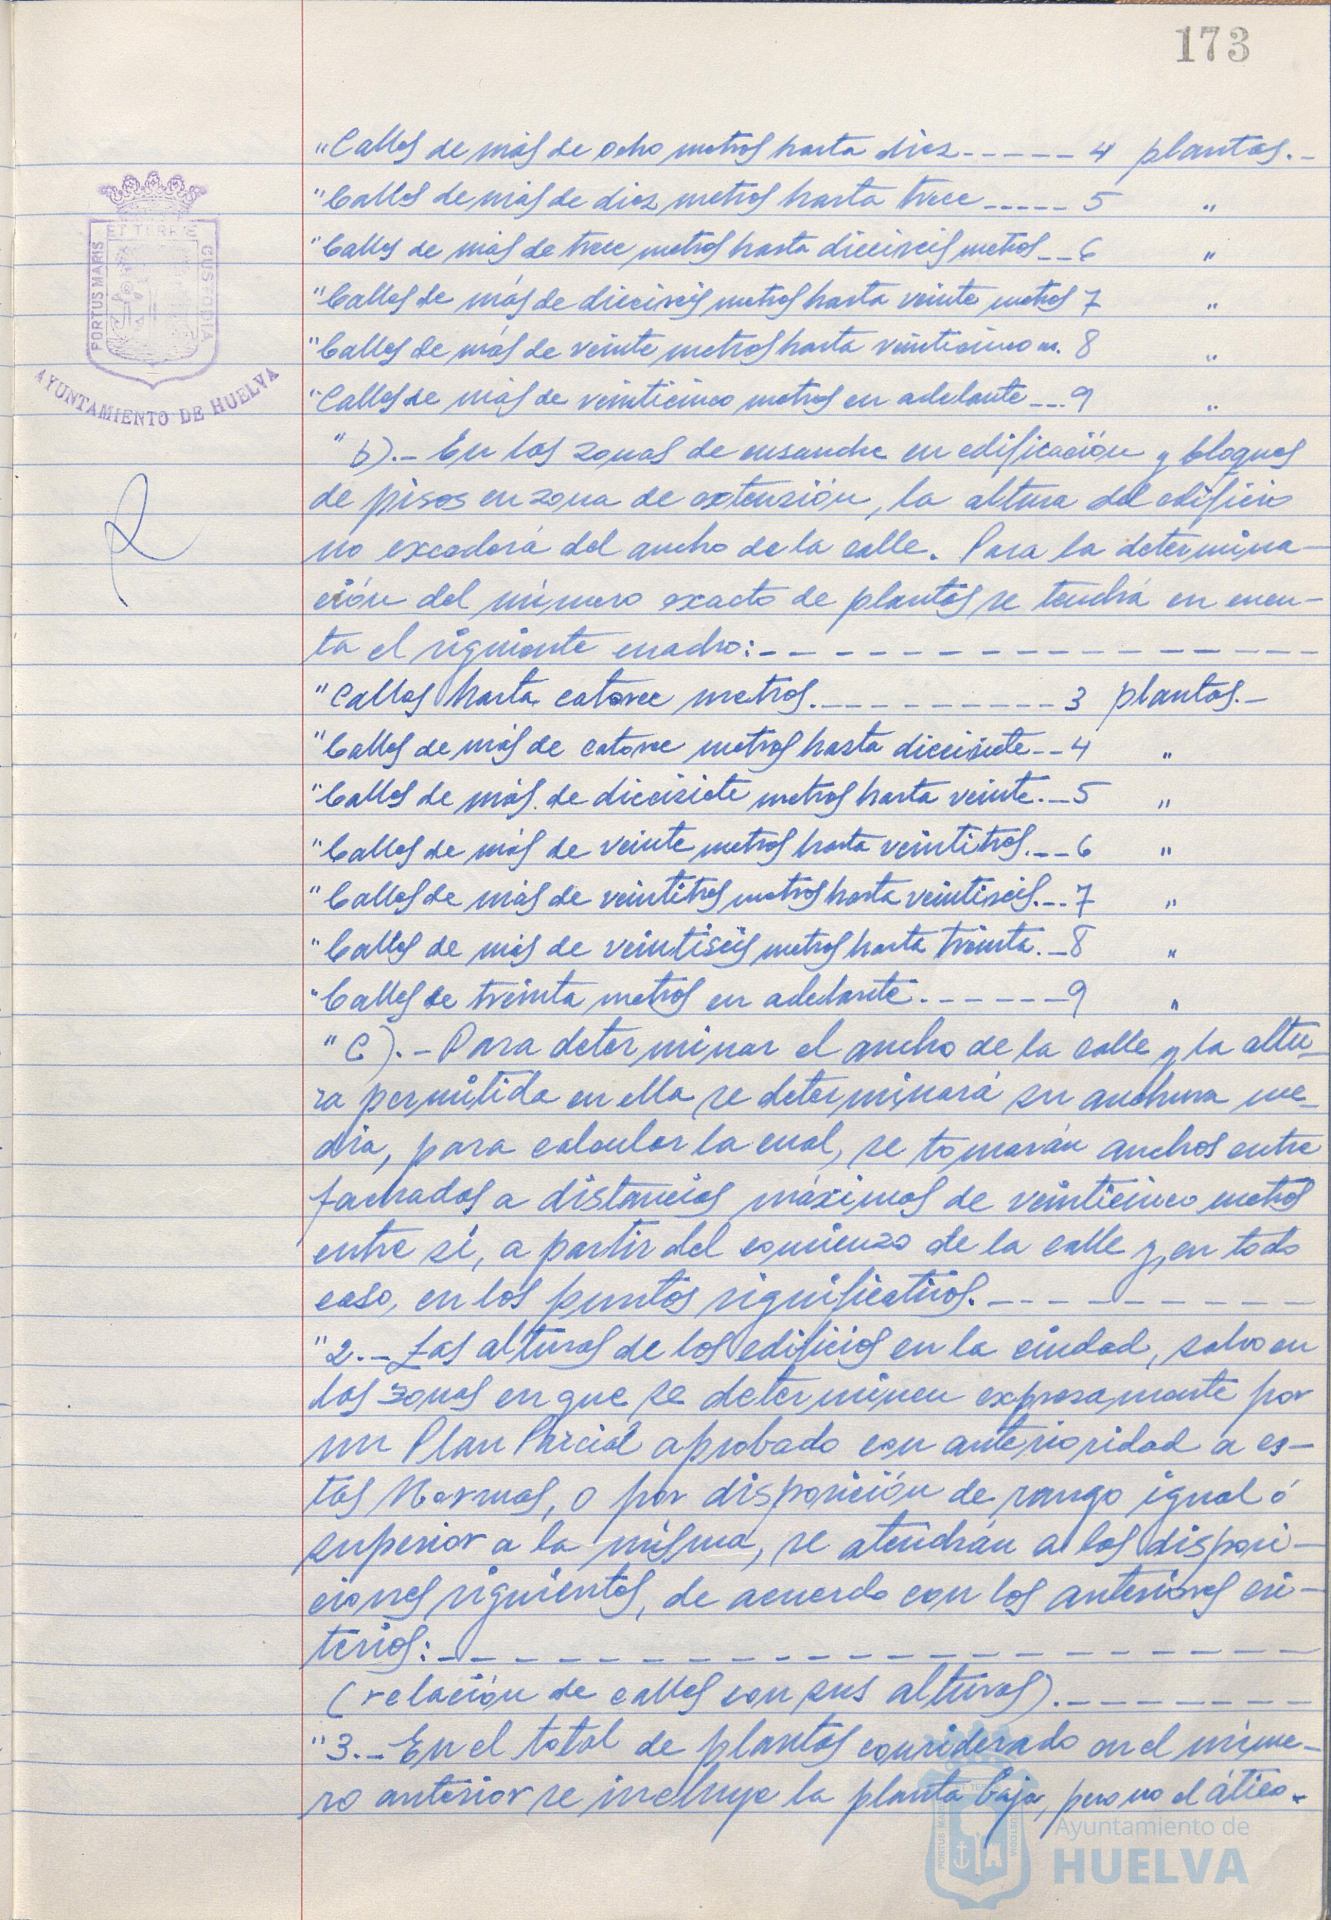 173
"Calles de más de ocho metros hasta diez----- 4 plantas.-
"Calles de más de diez metros hasta trece ----- 5 "
"Calles de más de trece metros hasta dieciseis metros -- 6 "
"Calles de más de dieciseis metros hasta veinte metros 7 "
"Calles de más de veinte metros hasta veinticinco m. 8 "
"Calles de más de veinticinco metros en adelante --- 9 "
" b).- En las zonas de ensanche en edificación y bloques
de pisos en zona de extensión, la altura del edificio
no excederá del ancho de la calle. Para la determina-
ción del número exacto de plantas se tendrá en cuen-
ta el siguiente cuadro:- - - - - - - - - - - - - - - - -
"Calles hasta catorce metros.---------- 3 plantas.-
"Calles de más de catorce metros hasta diecisiete -- 4 "
"Calles de más de diecisiete metros hasta veinte.-- 5 "
"Calles de más de veinte metros hasta veintitres.-- 6 "
"Calles de más de veintitres metros hasta veintiseis.-- 7 "
"Calles de más de veintiseis metros hasta treinta.- 8 "
"Calles de treinta metros en adelante.------ 9 "
" C).- Para determinar el ancho de la calle y la altu-
ra permitida en ella se determinará su anchura me-
dia, para calcular la cual, se tomarán anchos entre
fachadas a distancias máximas de veinticinco metros
entre sí, a partir del comienzo de la calle y, en todo
caso, en los puntos significativos.- - - - - - - -
"2.- Las alturas de los edificios en la ciudad, salvo en
las zonas en que se determinen expresamente por
un Plan Parcial aprobado con anterioridad a es-
tas Normas, o por disposición de rango igual ó
superior a la misma, se atendrán a las disposi-
ciones siguientes, de acuerdo con los anteriores cri-
terios:- - - - - - - - - - - - - - - - - - - - - -
(relación de calles con sus alturas).- - - - - - -
"3.- En el total de plantas considerado en el núme-
ro anterior se incluye la planta baja, pero no el ático.-
PORTUS MARIS ET TERRAE CUSTODIA
AYUNTAMIENTO DE HUELVA
Ayuntamiento de
HUELVA